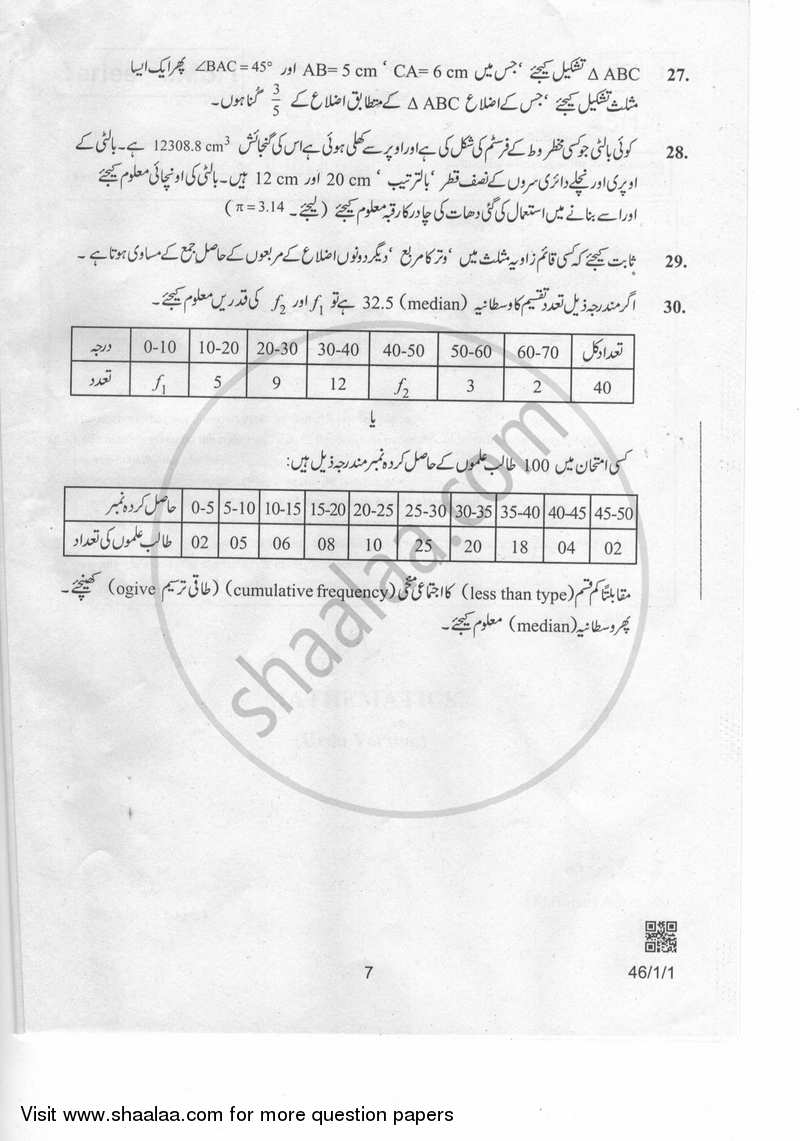 27. Δ ABC تشکیل کیجئے ‘ جس میں CA= 6 cm ‘ AB= 5 cm اور ∠BAC = 45° پھر ایک ایسا
مثلث تشکیل کیجئے ‘ جس کے اضلاع Δ ABC کے متطابق اضلاع کے 3/5 گنا ہوں۔
28. کوئی بالٹی جو کسی مخروط کے فرسٹم کی شکل کی ہے اور اوپر سے کھلی ہوئی ہے اس کی گنجائش 12308.8 cm³ ہے۔ بالٹی کے
اوپری اور نچلے دائری سروں کے نصف قطر ‘ بالترتیب ‘ 20 cm اور 12 cm ہیں۔ بالٹی کی اونچائی معلوم کیجئے
اور اسے بنانے میں استعمال کی گئی دھات کی چادر کا رقبہ معلوم کیجئے ( لیجئے۔ π = 3.14 )
29. ثابت کیجئے کہ کسی قائم زاویہ مثلث میں ‘ وتر کا مربع ‘ دیگر دونوں اضلاع کے مربعوں کے حاصل جمع کے مساوی ہوتا ہے۔
30. اگر مندرجہ ذیل تعدد تقسیم کا وسطانیہ (median) 32.5 ہے تو f₁ اور f₂ کی قدریں معلوم کیجئے۔
درجہ 0-10 10-20 20-30 30-40 40-50 50-60 60-70 تعداد کل
تعدد f₁ 5 9 12 f₂ 3 2 40
یا
کسی امتحان میں 100 طالب علموں کے حاصل کردہ نمبر مندرجہ ذیل ہیں:
حاصل کردہ نمبر 0-5 5-10 10-15 15-20 20-25 25-30 30-35 35-40 40-45 45-50
طالب علموں کی تعداد 02 05 06 08 10 25 20 18 04 02
مقابلتاً کم قسم (less than type) کا اجتماعی منحنی (cumulative frequency) (طاقی ترسیم ogive) کھینچئے۔
پھر وسطانیہ (median) معلوم کیجئے۔
shaalaa.com
7
46/1/1
Visit www.shaalaa.com for more question papers